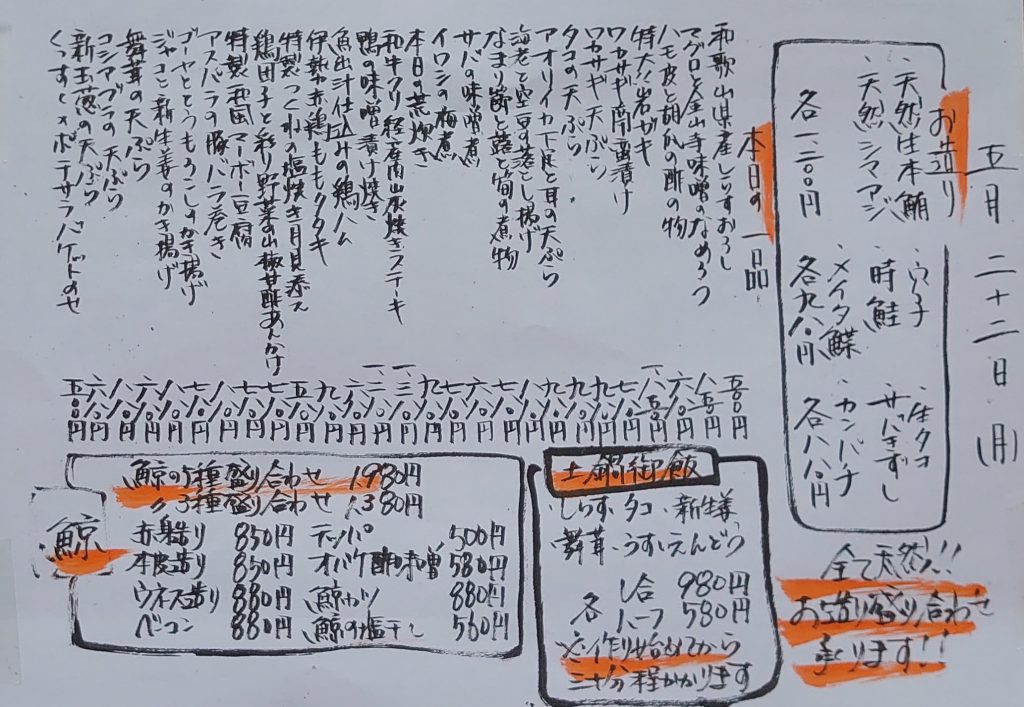 五月二十二日(月)
お造り
・天然生本鮪
・天然シマアジ
各一、二〇〇円
・穴子
・時鮭
・メイタ鰈
各九八〇円
・生タコ
・きずし
・カンパチ
各八八〇円
全て天然!!
お造り盛り合わせ
承ります!!
本日の一品
和歌山県産しらすおろし 五〇〇円
マグロと金山寺味噌のなめろう 八五〇円
ハモ皮と胡瓜の酢の物 六八〇円
特大!岩ガキ
ワカサギ南蛮漬け 七八〇円
ワカサギ天ぷら
タコの天ぷら
アオリイカ下足と耳の天ぷら
海老と空豆の落とし揚げ
なまり節と蕗と筍の煮物
サバの味噌煮
イワシの梅煮
本日の荒炊き
和牛クリ 経産 炭焼きステーキ
鴨の味噌漬け焼き
魚出汁仕込みの鶏ハム
伊勢赤鶏ももタタキ
特製つくねの塩焼き月見添え
鶏団子と彩り野菜の山椒甘酢あんかけ
特製和風マーボー豆腐
アスパラの豚バラ巻き
ゴーヤととうもろこしのかき揚げ
ジャコと新生姜のかき揚げ
舞茸の天ぷら
コシアブラの天ぷら
新玉葱の天ぷら
ポテサラバケットのせ 五八〇円
土鍋御飯
・しらす・タコ・新生姜
・舞茸・うすいえんどう
各 1合 980円
ハーフ 580円
※作り始めてから
三十分程かかります
鯨
鯨の5種盛り合わせ 1,980円
〃3種盛り合わせ 1,380円
赤身造り 850円 テッパ 500円
本皮造り 850円 オバケ酢味噌 580円
ウネス造り 880円 鯨カツ 880円
ベーコン 880円 鯨の塩干し 560円